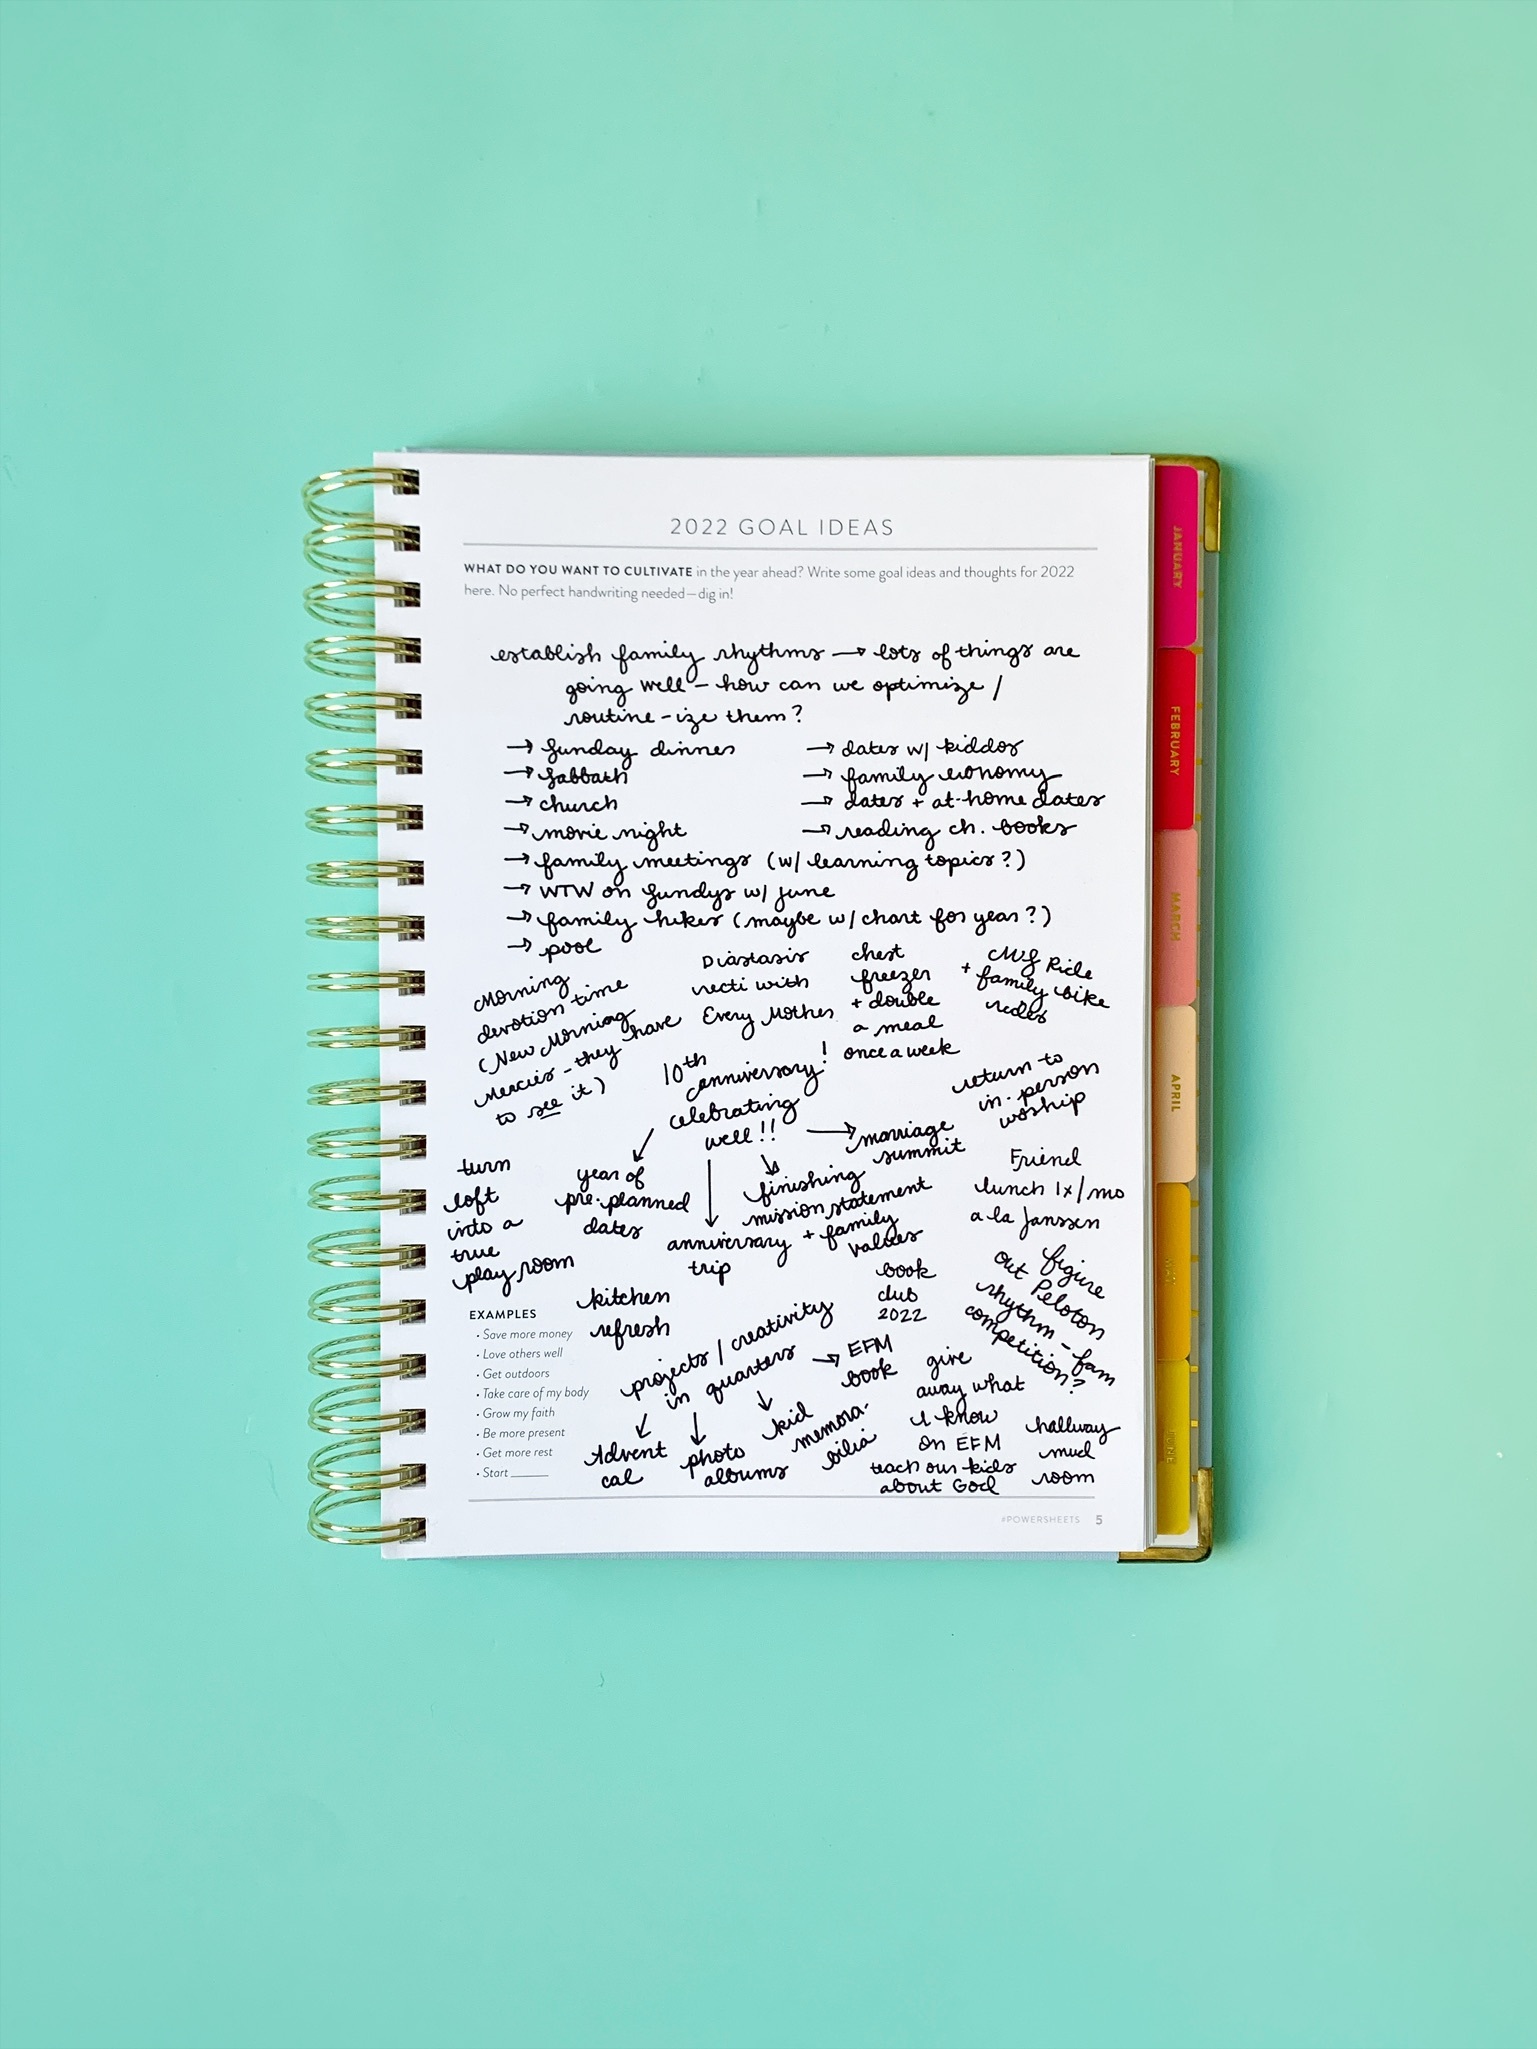 2022 GOAL IDEAS
WHAT DO YOU WANT TO CULTIVATE in the year ahead? Write some goal ideas and thoughts for 2022
here. No perfect handwriting needed—dig in!
establish family rhythms → lots of things are
going well - how can we optimize /
routine-ize them?
→ Sunday dinner
→ Sabbath
→ church
→ movie night
→ dates w/ kiddos
→ family economy
→ dates + at-home dates
→ reading ch. books
→ family meetings (w/ learning topics?)
→ WTW on Sundys w/ June
→ family hikes (maybe w/ chart for year?)
→ pool
Morning
devotion time
(New Morning
Mercies - they have
to see it)
Diastasis
recti with
Every Mother
chest
freezer
+ double
a meal
once a week
+ family bike
rides
10th
anniversary!
celebrating
well!!
→ marriage
summit
return to
in-person
worship
turn
loft
into a
true
play room
year of
pre-planned
dates
anniversary
trip
finishing
mission statement
+ family
values
Friend
lunch 1x/mo
a la Janssen
kitchen
refresh
book
club
2022
figure
out Peloton
rhythm - fam
competition?
projects / creativity
in quarters
→ EFM
book
Advent
cal
photo
albums
kid
memora-
bilia
give
away what
I know
on EFM
teach our kids
about God
hallway
mud
room
EXAMPLES
• Save more money
• Love others well
• Get outdoors
• Take care of my body
• Grow my faith
• Be more present
• Get more rest
• Start ______
#POWERSHEETS 5
JANUARY
FEBRUARY
MARCH
APRIL
MAY
JUNE